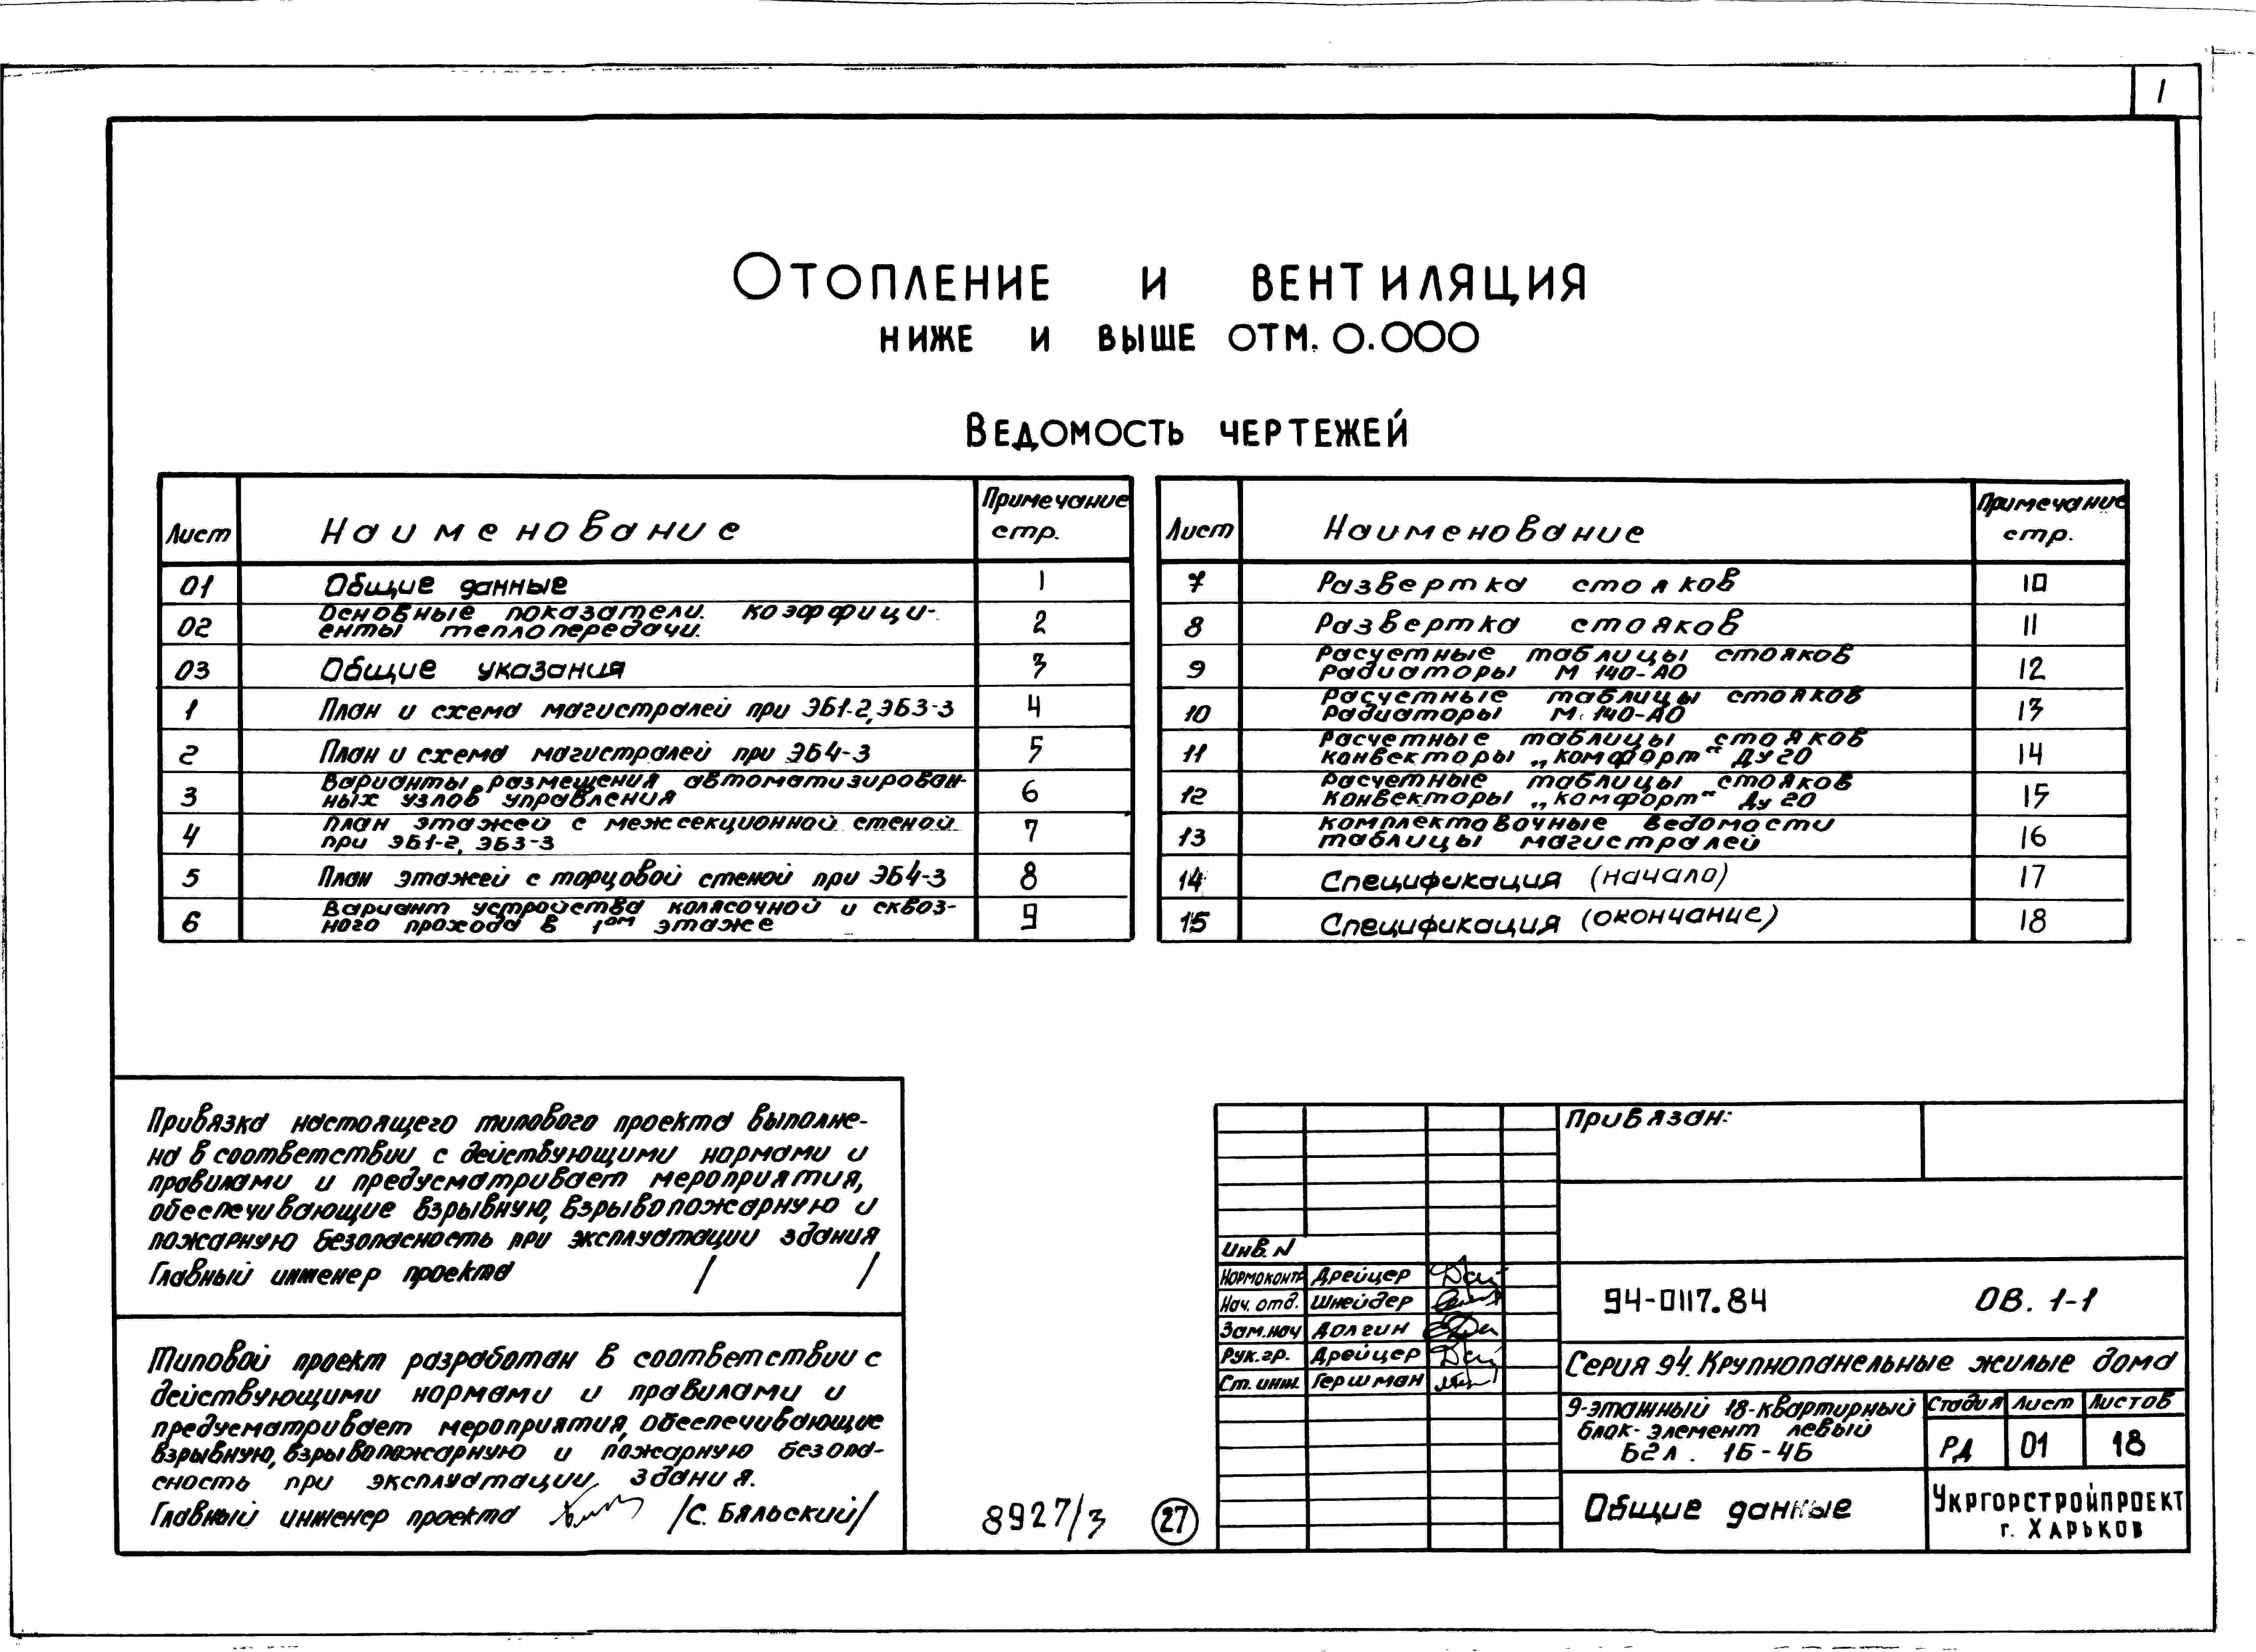 1
Отопление и вентиляция
ниже и выше отм. 0.000
Ведомость чертежей
Лист Наименование Примечание стр.
01 Общие данные 1
02 Основные показатели. Коэффици-
енты теплопередачи. 2
03 Общие указания 3
1 План и схема магистралей при ЭБ1-2, ЭБ3-3 4
2 План и схема магистралей при ЭБ4-3 5
3 Варианты размещения автоматизирован-
ных узлов управления 6
4 План этажей с межсекционной стеной
при ЭБ1-2, ЭБ3-3 7
5 План этажей с торцовой стеной при ЭБ4-3 8
6 Вариант устройства колясочной и сквоз-
ного прохода в 1ом этаже 9
Лист Наименование Примечание стр.
7 Развертка стояков 10
8 Развертка стояков 11
9 Расчетные таблицы стояков
Радиаторы М 140-АО 12
10 Расчетные таблицы стояков
Радиаторы М. 140-АО 13
11 Расчетные таблицы стояков
Конвекторы „Комфорт“ Ду 20 14
12 Расчетные таблицы стояков
Конвекторы „Комфорт“ Ду 20 15
13 Комплектовочные ведомости
таблицы магистралей 16
14 Спецификация (начало) 17
15 Спецификация (окончание) 18
Привязка настоящего типового проекта выполне-
на в соответствии с действующими нормами и
правилами и предусматривает мероприятия,
обеспечивающие взрывную, взрывопожарную и
пожарную безопасность при эксплуатации здания
Главный инженер проекта / /
Типовой проект разработан в соответствии с
действующими нормами и правилами и
предусматривает мероприятия, обеспечивающие
взрывную, взрывопожарную и пожарную безопа-
сность при эксплуатации здания.
Главный инженер проекта /С. Бяльский/
8927/3 27
Привязан:
Инв. N
Нормоконтр. Дрейцер
Нач. отд. Шнейдер
Зам. нач Долгин
Рук. гр. Дрейцер
Ст. инж. Гершман
94-0117.84 ОВ. 1-1
Серия 94. Крупнопанельные жилые дома
9-этажный 18-квартирный
блок-элемент левый
Б2л. 1Б-4Б
Стадия Лист Листов
РД 01 18
Общие данные
Укргорстройпроект
г. Харьков